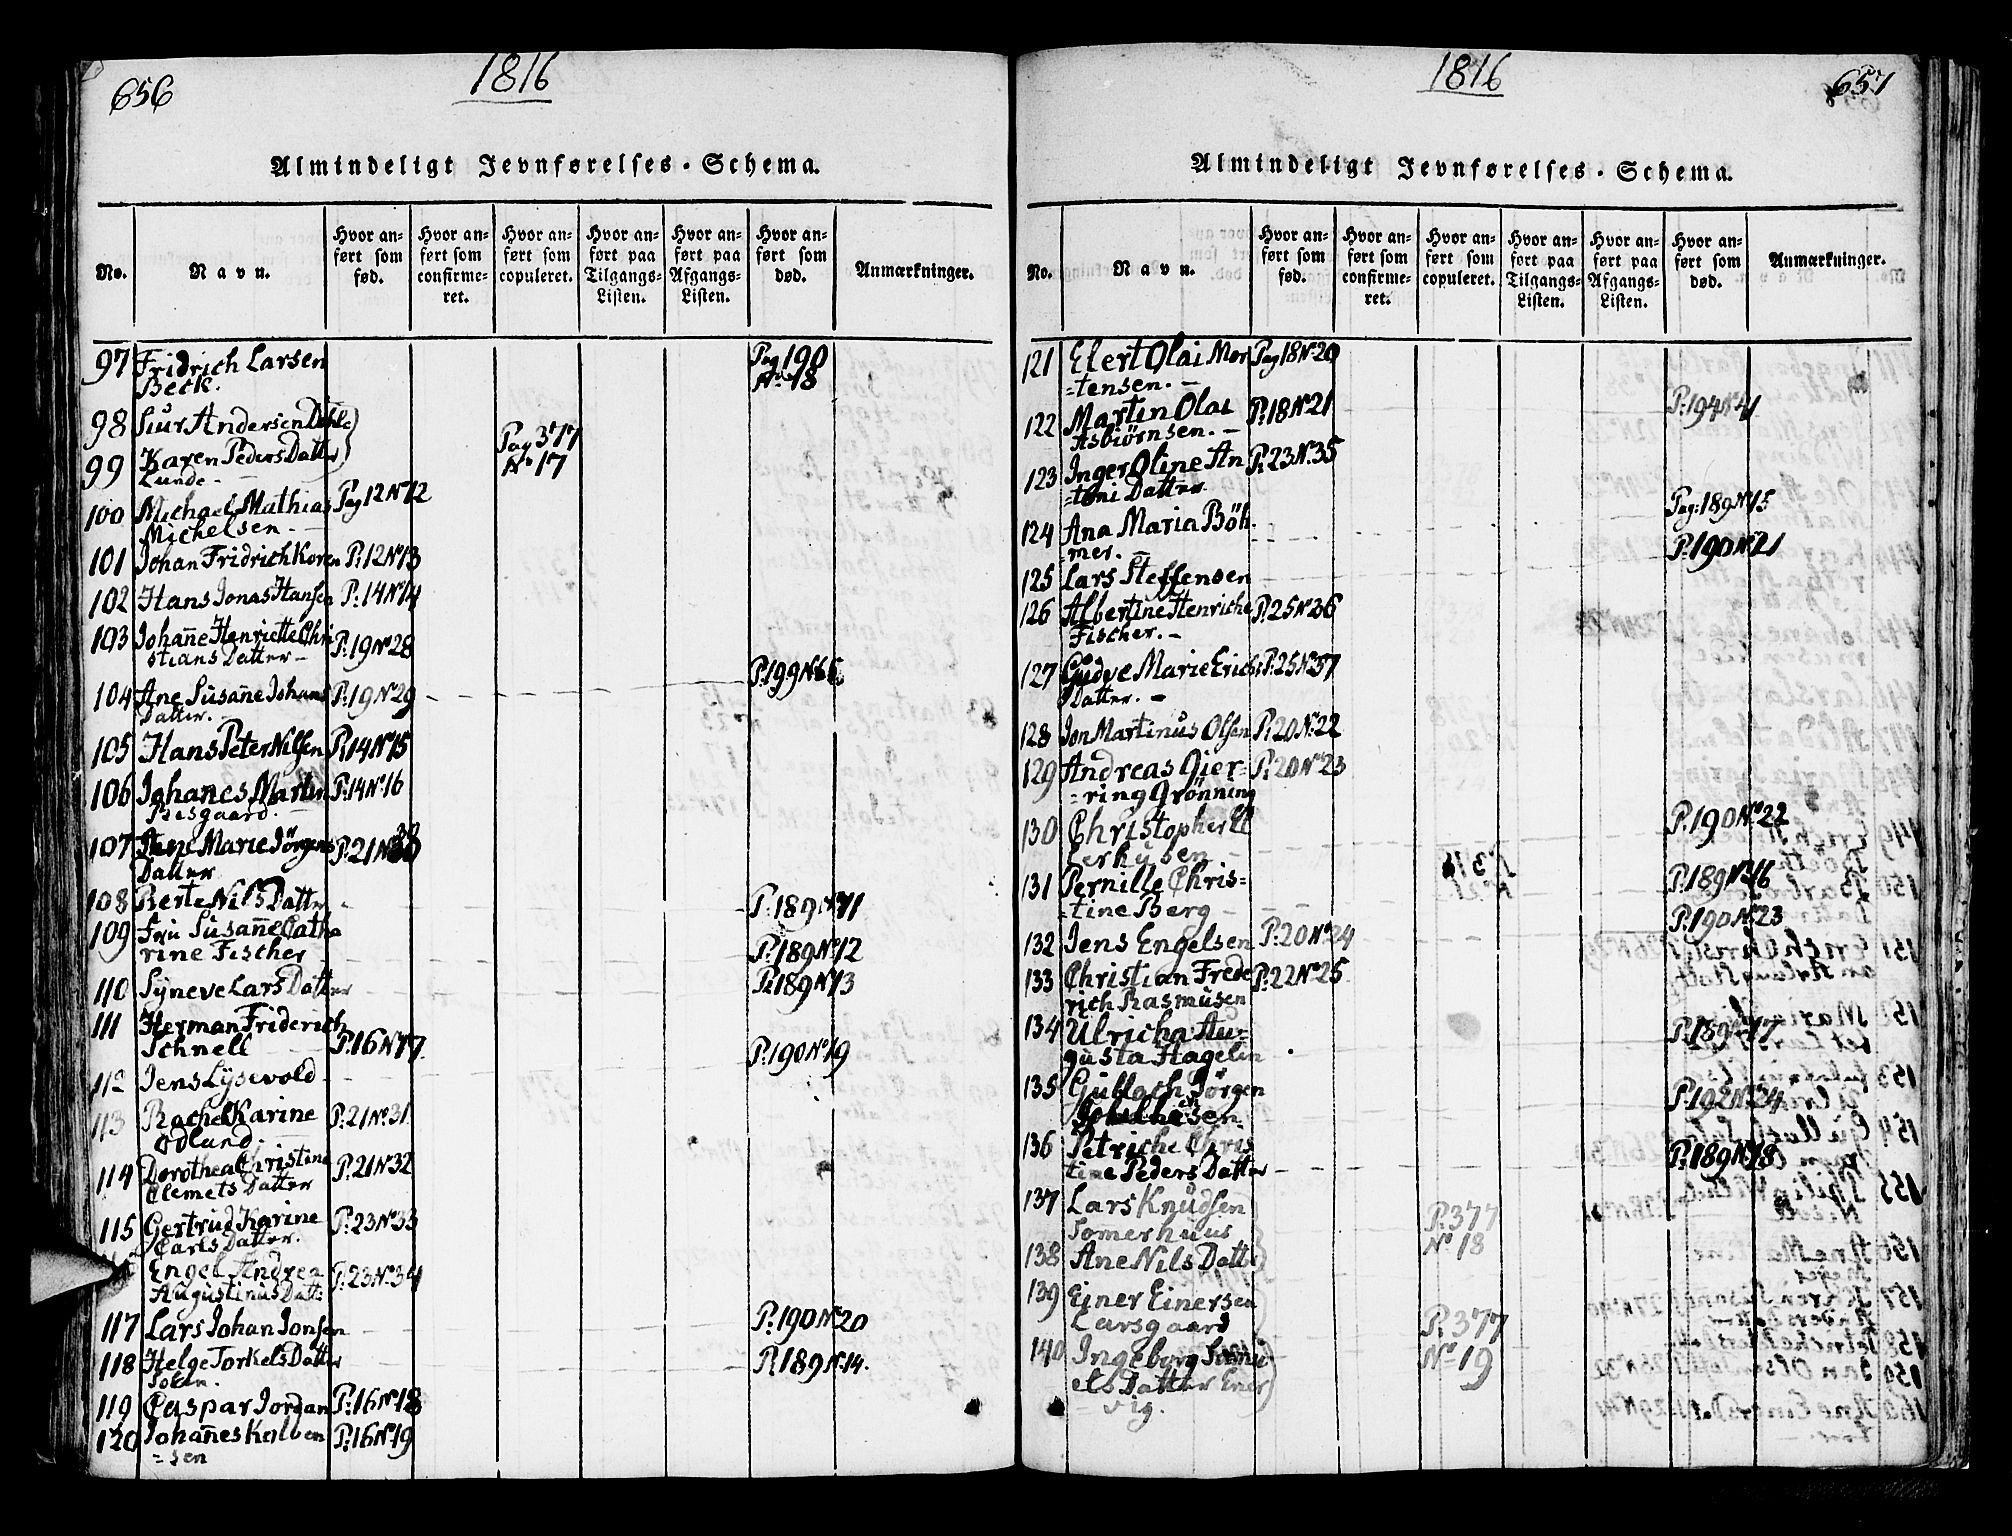 656
1816
Almindeligt Jevnførelses-Schema.
No.
Navn.
Hvor anført som fød.
Hvor anført som confirmeret.
Hvor anført som copuleret.
Hvor anført paa Tilgangs-Listen.
Hvor anført paa Afgangs-Listen.
Hvor anført som død.
Anmærkninger.
97 Fridrich Larsen Pag 190
Beck. No 18
98 Siur Andersen Dahle
99 Karen Peders Datter Pag 377
Lunde No 17
100 Michael Mathias Pag 12 No 12
Michelsen
101 Johan Fridrich Koren P: 12 No 13
102 Hans Jonas Hansen P: 14 No 14
103 Johan̄e Henriette Chri P: 19 No 28
stians Datter
104 Ane Susan̄e Johans P: 19 No 29 P: 199 No 66
Datter.
105 Hans Peter Nilsen P: 14 No 15
106 Johanes Martin P: 14 No 16
Risgaard.
107 Ane Marie Jørgens P: 21 No 30
Datter
108 Berte Nils Datter P: 189 No 11
109 Fru Susan̄e Catha
rine Fischer P: 189 No 12
110 Syneve Lars Datter P: 189 No 13
111 Herman Friderich
Schnell P: 16 No 17
112 Jens Lysevold P: 190 No 19
113 Rachel Karine P: 21 No 31
Odlund.
114 Dorothea Christine P: 21 No 32
Clemets Datter
115 Gertrud Karine P: 23 No 33
Carls Datter.
Engel Andrea P: 23 No 34
Augustinus Datt:
117 Lars Johan Jonsen P: 190 No 20
118 Helge Torkels Datter P: 189 No 14.
119 Caspar Jordan P: 16 No 18
120 Johan̄es Kalven P: 16 No 19
=sen
1816
657
Almindeligt Jevnførelses-Schema.
No.
Navn.
Hvor anført som fød.
Hvor anført som confirmeret.
Hvor anført som copuleret.
Hvor anført paa Tilgangs-Listen.
Hvor anført paa Afgangs-Listen.
Hvor anført som død.
Anmærkninger.
121 Elert Olai Mor Pag 18 No 20
=tensen.
122 Martin Olai P: 18 No 21 P: 194 No 41
Asbiørnsen.
123 Inger Oline An P: 23 No 35
=toni Datter
124 Ana Maria Böh Pag: 189 No 15
mer.
125 Lars Steffensen P: 190 No 21
126 Albertine Henriche P: 25 No 36
Fischer.
127 Gudve Marie Erichs P: 25 No 37
Datter.
128 Jon Martinus Olsen P: 20 No 22
129 Andreas Gier= P: 20 No 23
=ring Grönning
130 Christopher El P: 190 No 22
lerhusen
131 Pernille Chris= P: 189 No 16
=tine Berg
132 Jens Engelsen P: 20 No 24 P: 190 No 23
133 Christian Frede P: 22 No 25
rich Rasmusen
134 Ulricha Au= P: 189 No 17
gusta Hagelin
135 Gulloch Jörgen P: 192 No 24
136 Petriche Chris P: 189 No 18
tine Peders Datter
137 Lars Knudsen P: 377
Somerhuus No 18
138 Ane Nils Datter
139 Einer Einersen
Larsgaard P: 377
140 Ingeborg No 19
els Datter Ener
vig.